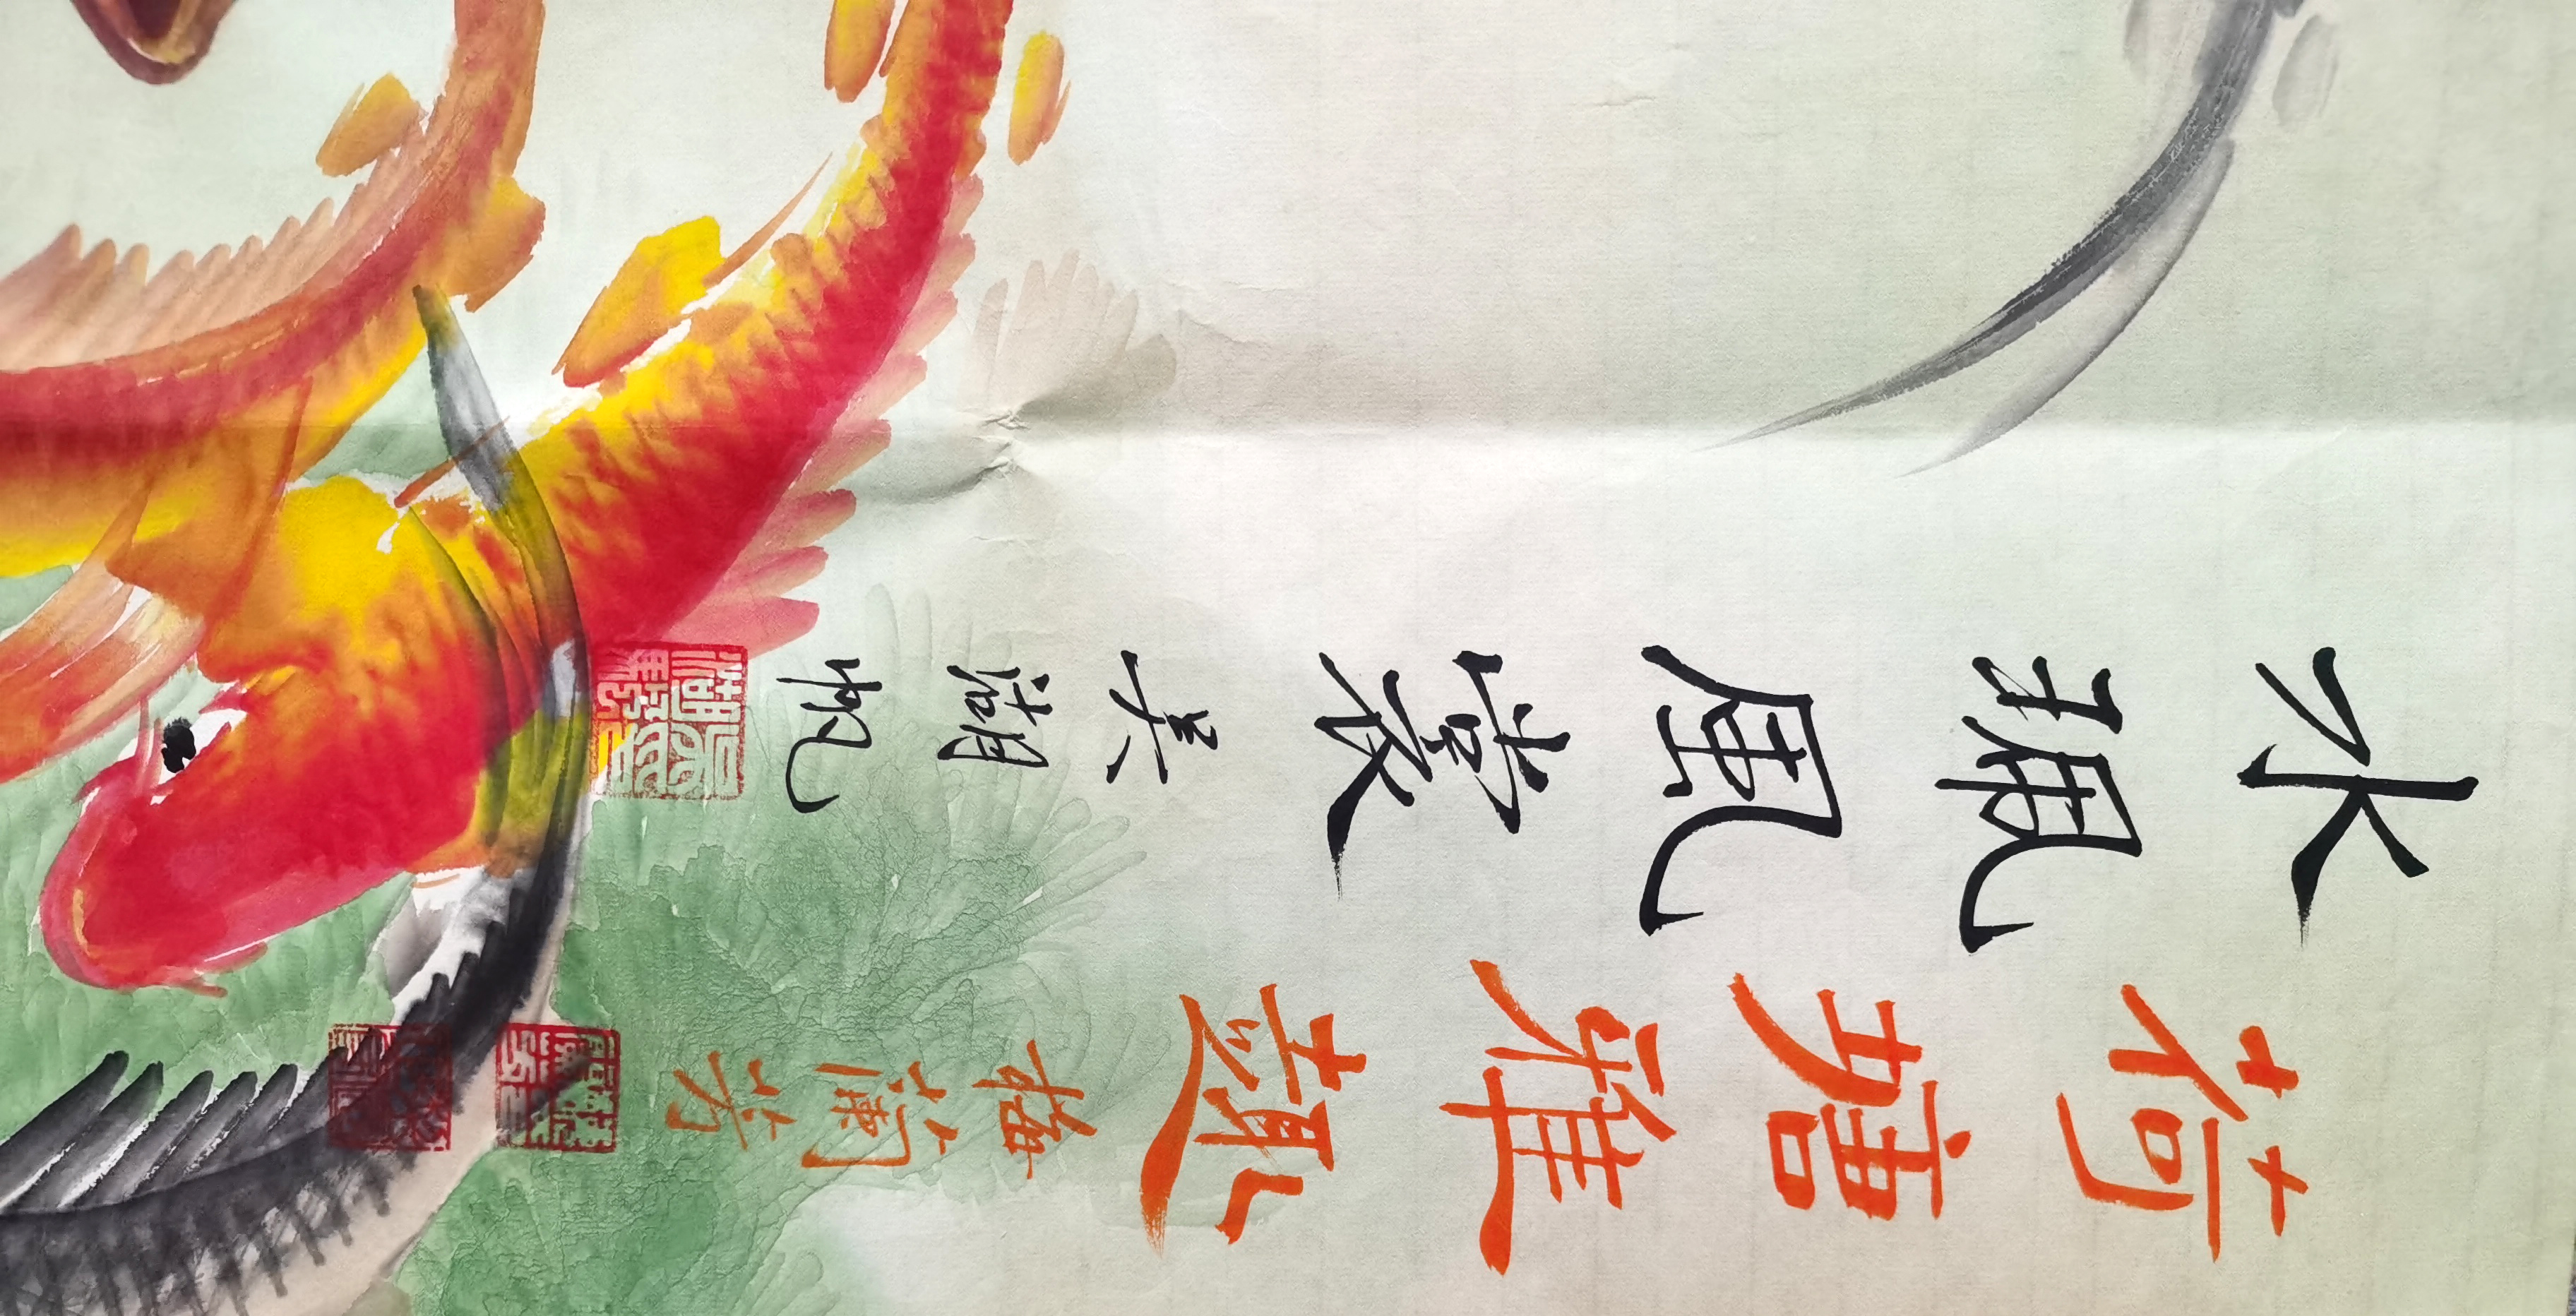 荷塘雅趣 梅蘭芳
水珮風裳 吴湖帆